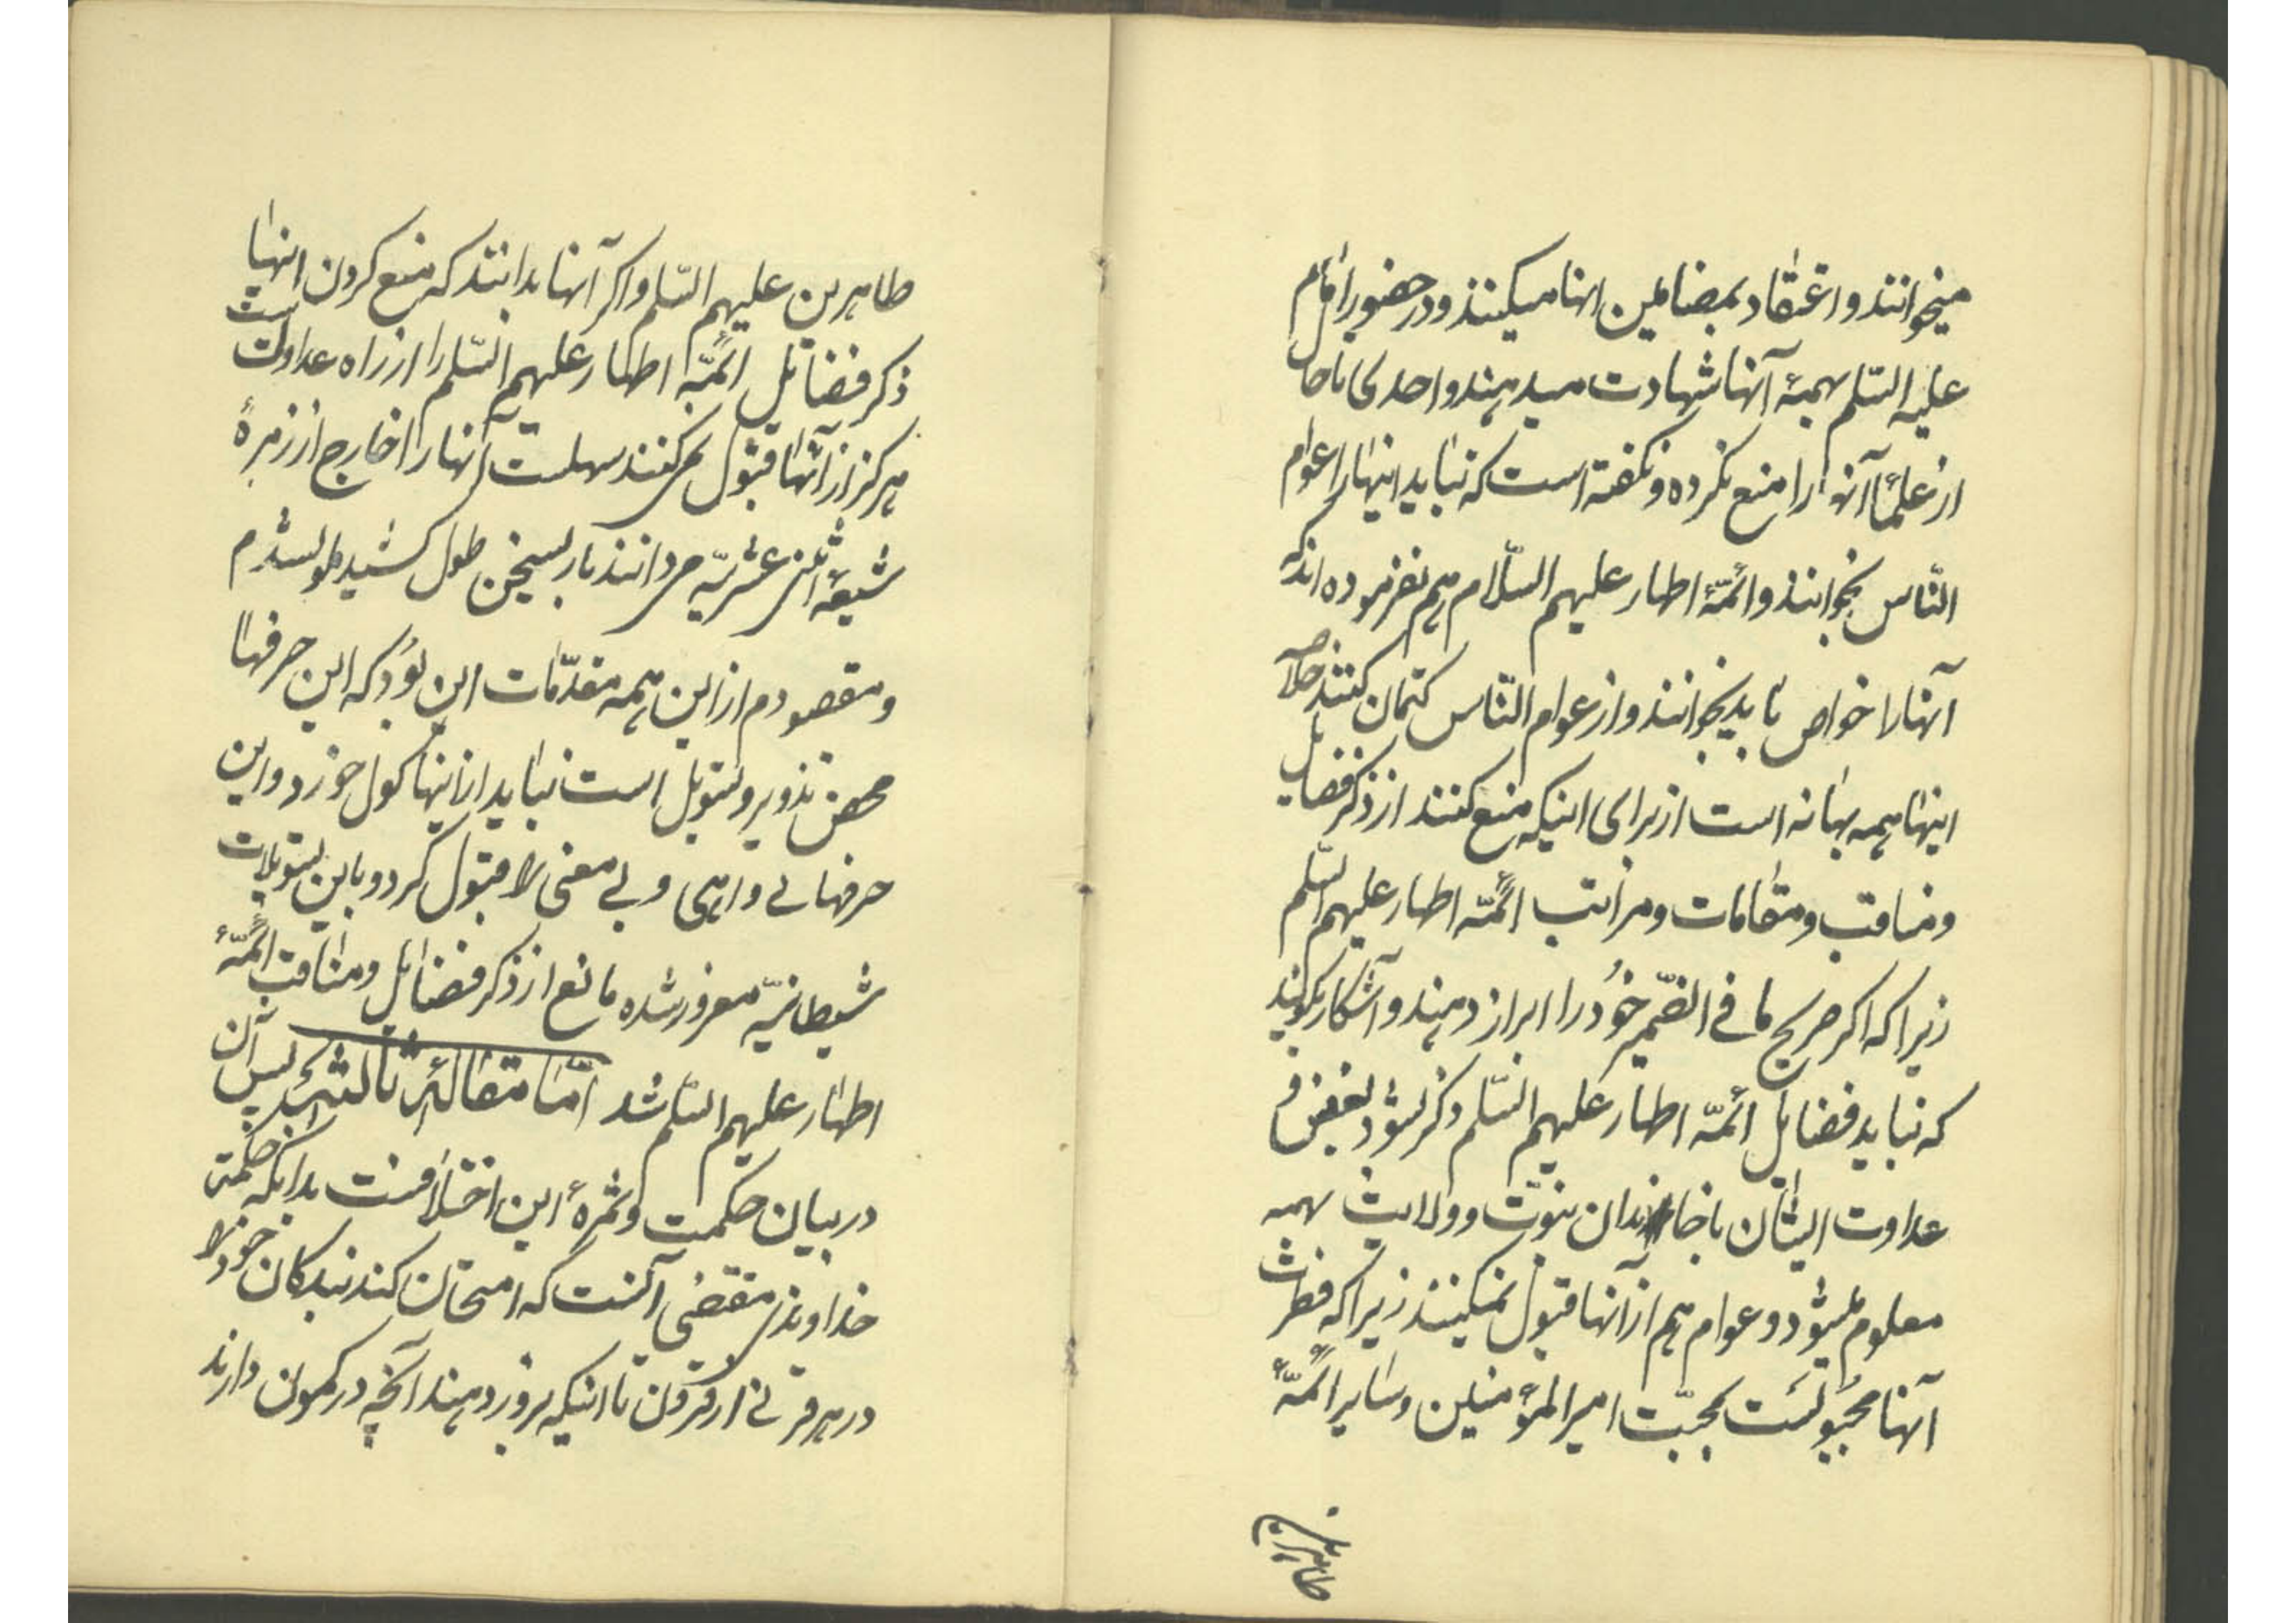 میخوانند و اعتقاد بمضامین انها میکنند و در حضور امام
علیه السّلم بهمهٔ آنها شهادت میدهند و احدی تا حال
از علمآ آنها را منع نکرده و نکفته است که نباید اینها را عوام
النّاس بخوانند و ائمّهٔ اطهار علیهم السّلام هم نفرموده اند که
آنها را خواص باید بخوانند و از عوام النّاس کتمان کنند خلاصه
اینها همه بهانه است از برای اینکه منع کنند از ذکر فضایل
و مناقب و مقامات و مراتب ائمّهٔ اطهار علیهم السّلم
زیرا که اکر صریح ما فی الضّمیر خود را ابراز دهند و آشکار بکویند
که نباید فضایل ائمّه اطهار علیهم السّلم ذکر بشود بغض و
عداوت ایشان با خاندان نبوّت و ولایت بهمه
معلوم میشود و عوام هم از آنها قبول نمیکنند زیرا که فطرت
آنها مجبولست بمحبّت امیر المؤمنین و سایر ائمّهٔ
طاهرین
طاهرین علیهم السّلم و اکر آنها بدانند که منع کردن اینها
ذکر فضایل ائمّهٔ اطهار علیهم السّلم را از راه عداوت است
هرکز از آنها قبول نمی‌کنند سهلست آنها را خارج از زمرهٔ
شیعهٔ اثنی عشریّه می دانند باری سخن طول کشید و ملول شدم
و مقصودم از این همه مقدّمات این بود که این حرفها
محض تذویر و تسویل است نباید از اینها کول خورد و این
حرفهای واهی و بی معنی را قبول کرد و باین تسویلات
شیطانیّه مغرور شده مانع از ذکر فضایل و مناقب ائمّهٔ
اطهار علیهم السّلم شد امّا مقالهٔ ثالثه پس آن
در بیان حکمت و ثمرهٔ این اختلافست بدانکه حکمت
خداوندی مقتضی آنست که امتحان کند بندکان خود را
در هر قرنی از قرون تا اینکه بروز دهند آنچه در کمون دارند